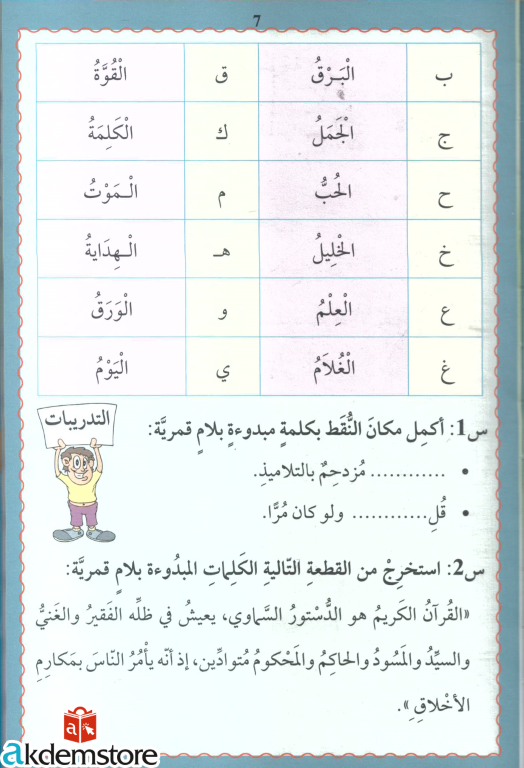 7
ب الْبَـرْقُ ق الْقُوَّةُ
ج الْجَمَلُ ك الْكَلِمَةُ
ح الْحُبُّ م الْـمَوْتُ
خ الْخَلِيلُ هـ الْـهِدَايةُ
ع الْعِلْمُ و الْوَرَقُ
غ الْغُلَامُ ي الْيَوْمُ
التدريبات
س1: أكمِل مكانَ النُّقَط بكلمةٍ مبدوءةٍ بلامٍ قمريَّة:
• ............ مُزدحِمٌ بالتلاميذِ.
• قُلِ............ ولو كان مُرًّا.
س2: استخرِجْ من القطعةِ التّاليةِ الكَلِماتِ المبدُوءة بلامٍ قمريَّة:
«القُرآنُ الكَريمُ هو الدُّستورُ السَّماوي، يعيشُ في ظلِّه الفَقيرُ والغَنيُّ
والسيِّدُ والمَسُودُ والحاكِمُ والمَحْكومُ مُتوادِّين، إذ أنّه يأْمُرُ النّاسَ بمَكارِمِ
الأخْلاقِ».
akdemstore